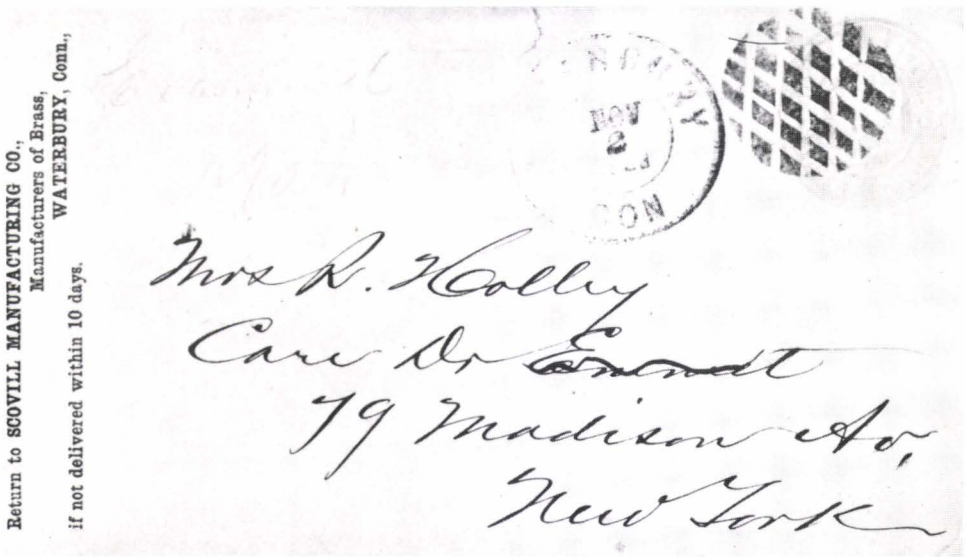 Return to SCOVILL MANUFACTURING CO.,
Manufacturers of Brass,
WATERBURY, Conn.,
if not delivered within 10 days.
NOV
2
CON
Mrs R. Holley
Care Dr Emmet
79 Madison Av,
New York